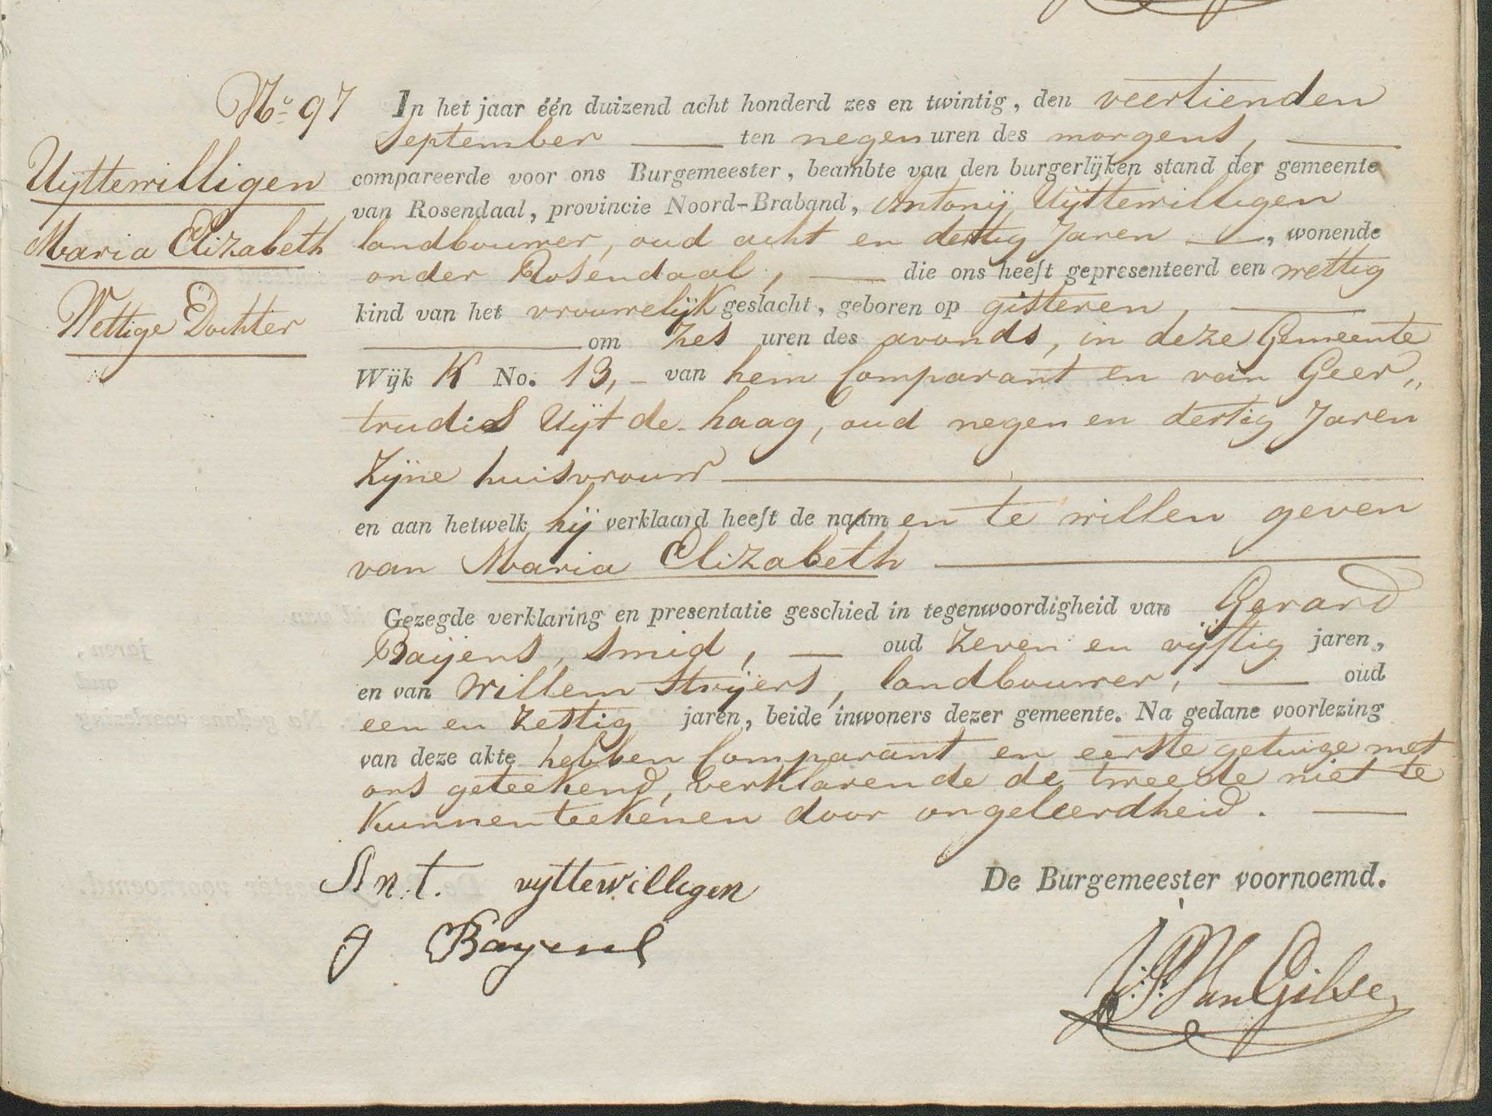 No 97
Uijttewilligen
Maria Elizabeth
Wettige Dochter
In het jaar één duizend acht honderd zes en twintig, den veertienden
September ten negen uren des morgens,
compareerde voor ons Burgemeester, beambte van den burgerlijken stand der gemeente
van Rosendaal, provincie Noord-Braband, Antonij Uijttewilligen
landbouwer, oud acht en dertig Jaren, wonende
onder Rosendaal, die ons heeft gepresenteerd een wettig
kind van het vrouwelijk geslacht, geboren op gisteren
om zes uren des avonds, in deze Gemeente
Wijk K No. 13, van hem Comparant en van Geer„
trudis Uijt de haag, oud negen en dertig Jaren
Zijne huisvrouw
en aan hetwelk hij verklaard heeft de naam en te willen geven
van Maria Elizabeth
Gezegde verklaring en presentatie geschied in tegenwoordigheid van Gerard
Baijens, smid, oud zeven en vijftig jaren,
en van Willem Strijers, landbouwer, oud
een en zestig jaren, beide inwoners dezer gemeente. Na gedane voorlezing
van deze akte hebben Comparant en eerste getuige met
ons geteekend, verklarende de tweede niet te
kunnen teekenen door ongeleerdheid.
Ant. uyttewilligen
g Bayens
De Burgemeester voornoemd.
J:P: Van Gilse